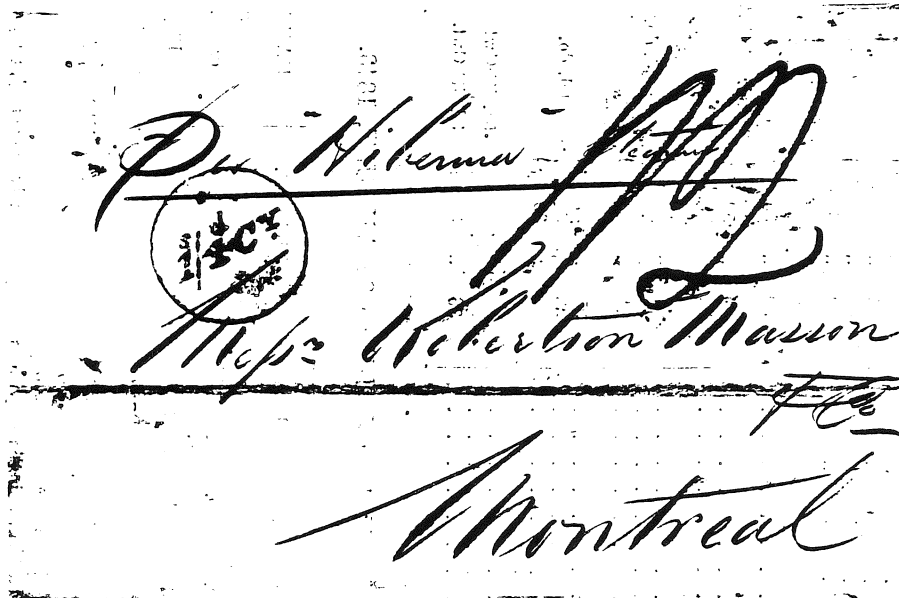 Per Hibernia Steamer
Messrs Robertson Masson
& Co
Montreal